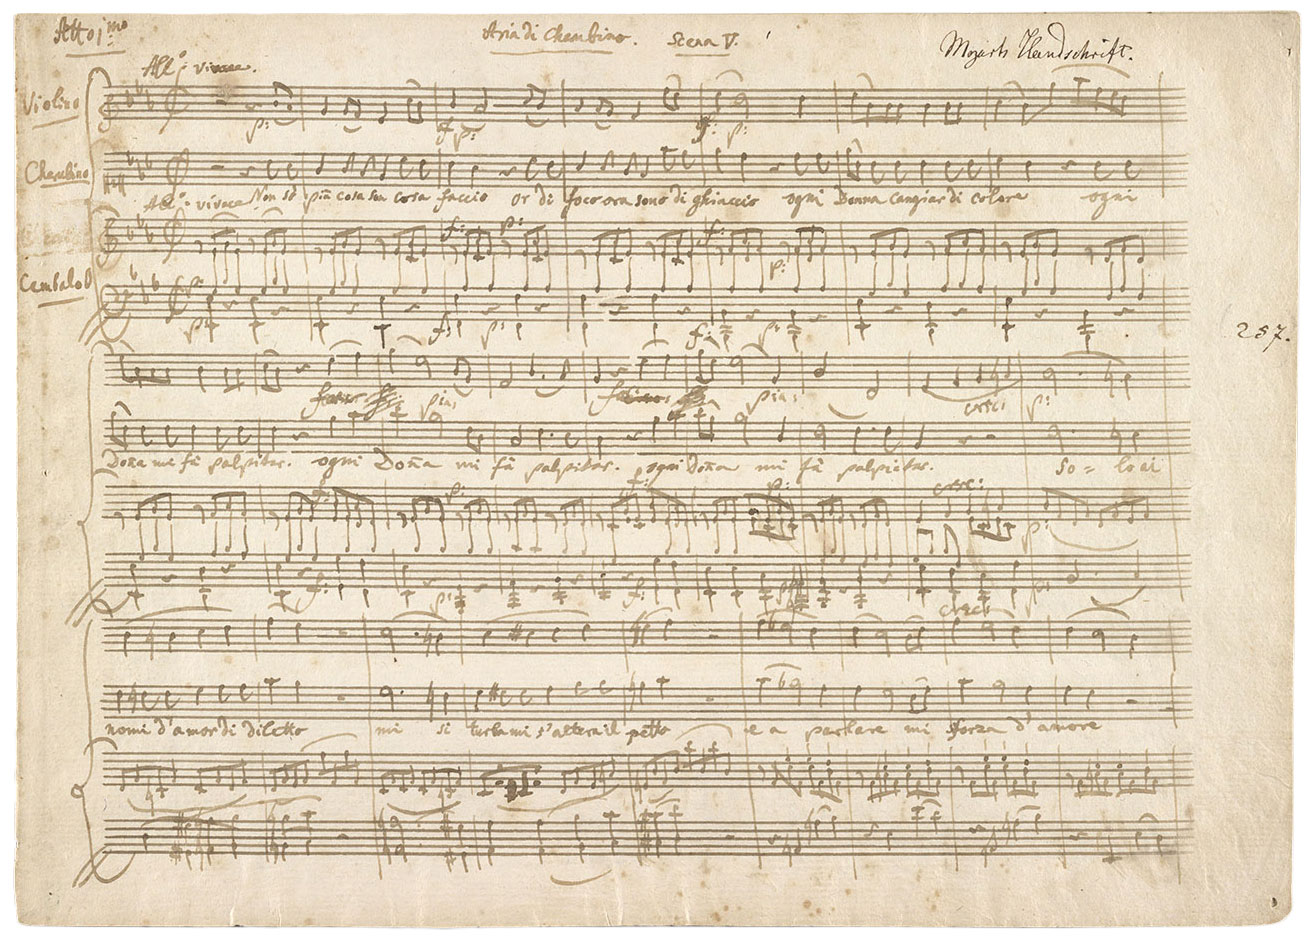 Atto 1mo Aria di Cherubino. Scena V. Mozarts Handschrift.
Allo vivace.
Violino
p: f: p: f: p:
Cherubino
Non so più cosa son cosa faccio or di foco ora sono di ghiaccio ogni Donna cangiar di colore ogni
Allo vivace
f: p: f: p:
Cembalo
p: f: p: f: p:
257.
pia: pia: cresc: p:
Dona mi fà palpitar. ogni Doña mi fà palpitar. ogni doña mi fà palpitar. so = lo ai
f: p: f: p: cresc: p:
f: p: f: cresc
nomi d'amor di diletto mi si turba mi s'altera il petto e a parlare mi sforza d'amore